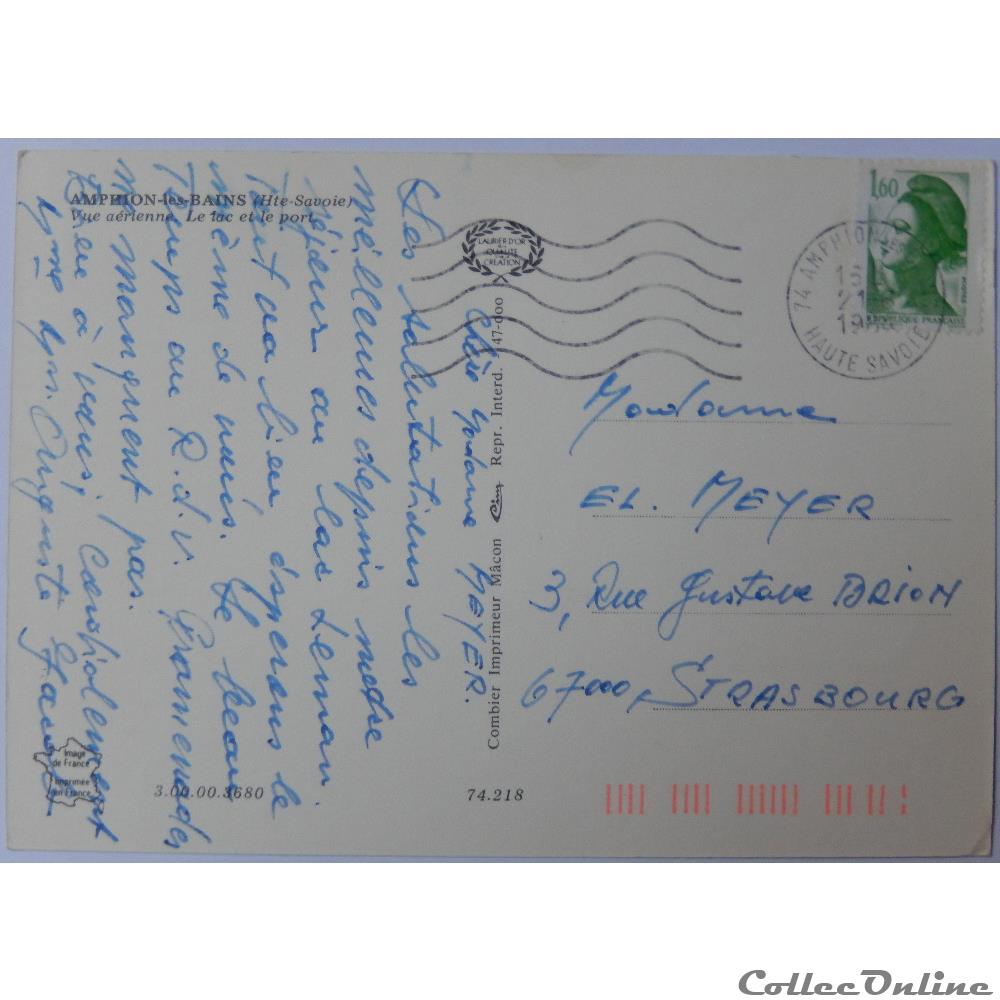 AMPHION-les-BAINS (Hte-Savoie)
Vue aérienne. Le lac et le port
Chère Madame MEYER.
Les salutations les
meilleures depuis notre
séjour au lac Leman.
Tout va bien, espérons le
même de vous. Le beau
Temps au R.d.V. Promenades
ne manquent pas.
Bien à vous, Cordialement
Auguste
LAURIER D'OR
DE LA
QUALITÉ
CRÉATION
Combier Imprimeur Mâcon Cim Repr. Interd. 47-000
1,60
REPUBLIQUE FRANÇAISE
POSTES
74 AMPHION
HAUTE SAVOIE
Madame
EL. MEYER
3, Rue Gustave BRION
67000, STRASBOURG
Image
de France
Imprimée
en France
3.00.00.3680
74.218
CollecOnline